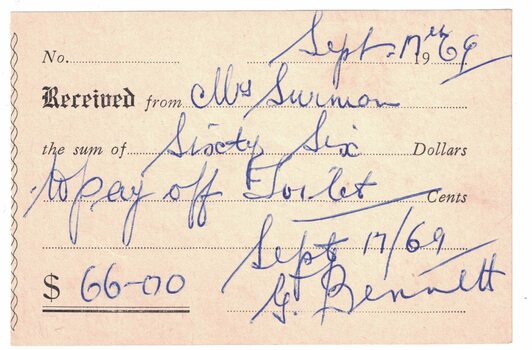 Sept. 17th 1969
No.
Received from Mrs Surman
the sum of Sixty Six Dollars
to pay off Toilet Cents
Sept 17/69
$ 66-00
G. Bennett